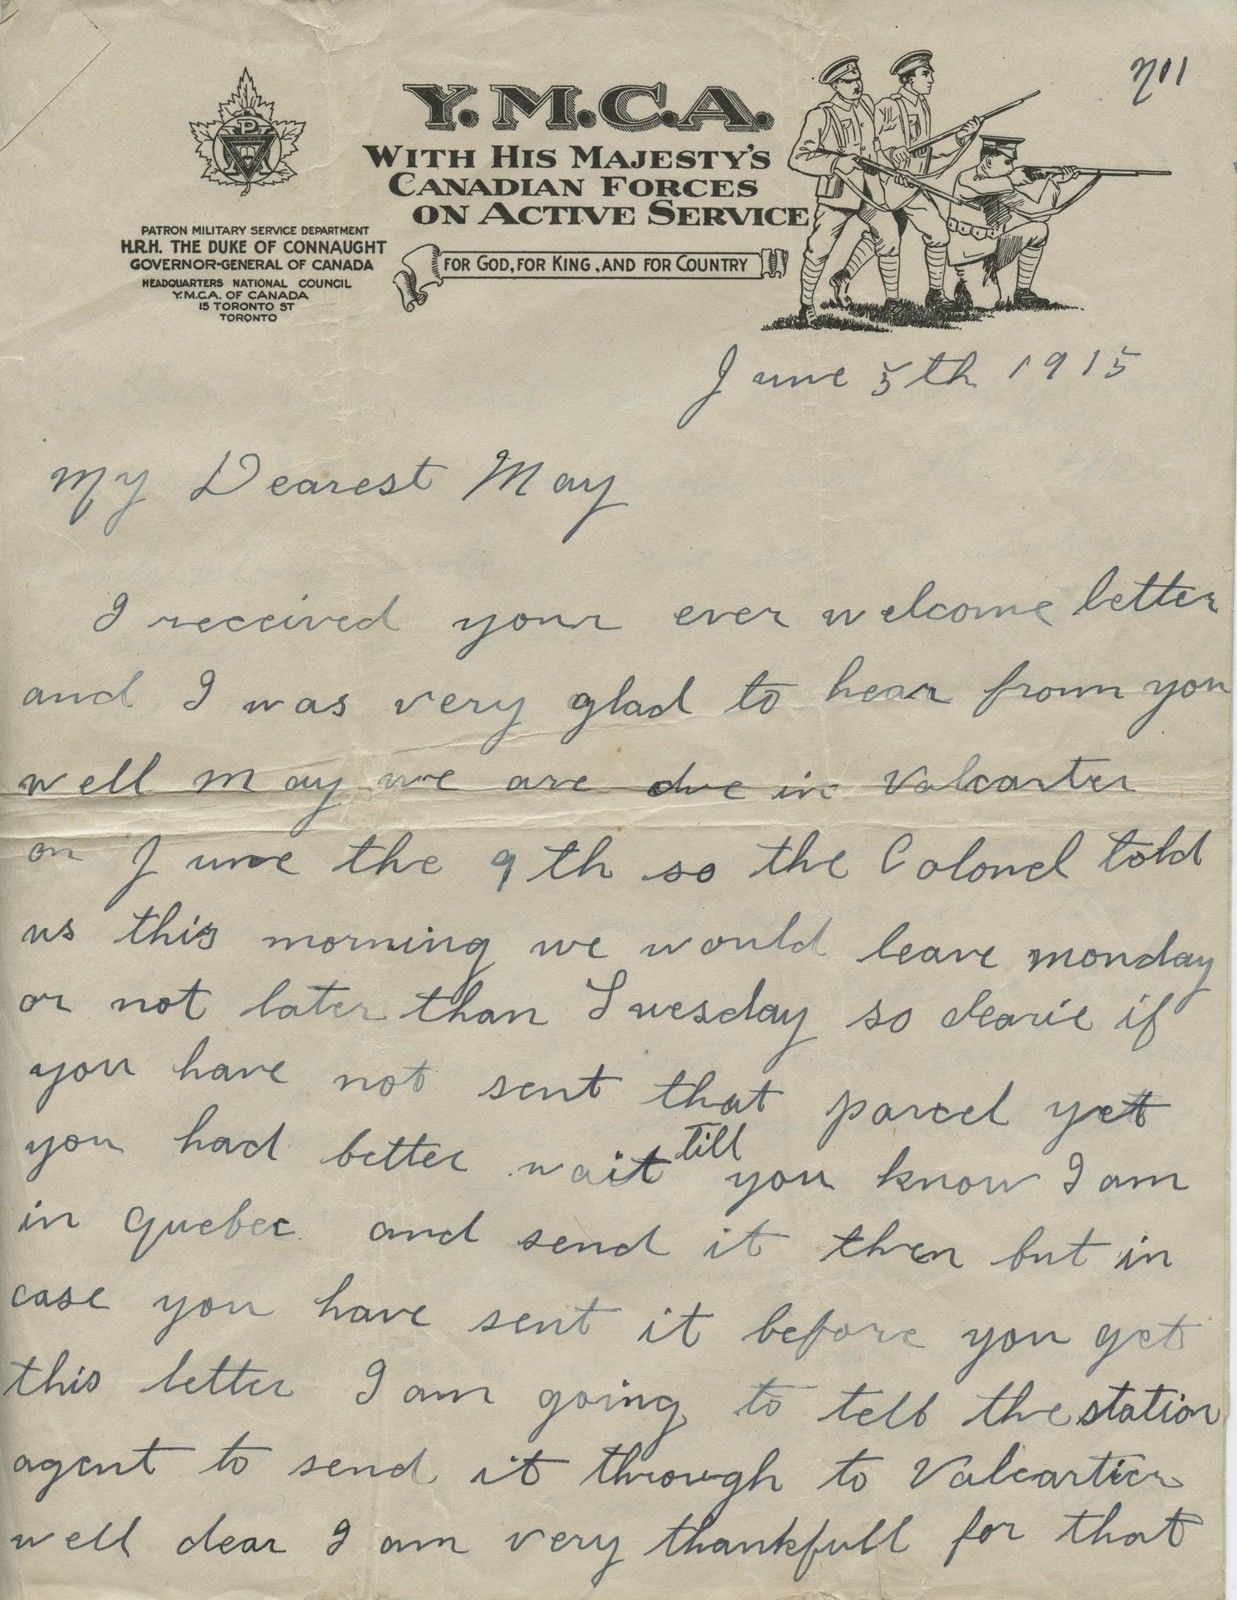 Y.M.C.A.
WITH HIS MAJESTY'S
CANADIAN FORCES
ON ACTIVE SERVICE
FOR GOD, FOR KING, AND FOR COUNTRY
PATRON MILITARY SERVICE DEPARTMENT
H.R.H. THE DUKE OF CONNAUGHT
GOVERNOR-GENERAL OF CANADA
HEADQUARTERS NATIONAL COUNCIL
Y.M.C.A. OF CANADA
15 TORONTO ST
TORONTO
June 5th 1915
My Dearest May
I received your ever welcome letter
and I was very glad to hear from you
well may we are due in Valcarter
on June the 9th so the Colonel told
us this morning we would leave monday
or not later than Tuesday so dearie if
you have not sent that parcel yet
you had better wait till you know I am
in quebec and send it then but in
case you have sent it before you get
this letter I am going to tell the station
agent to send it through to Valcartier
well dear I am very thankfull for that